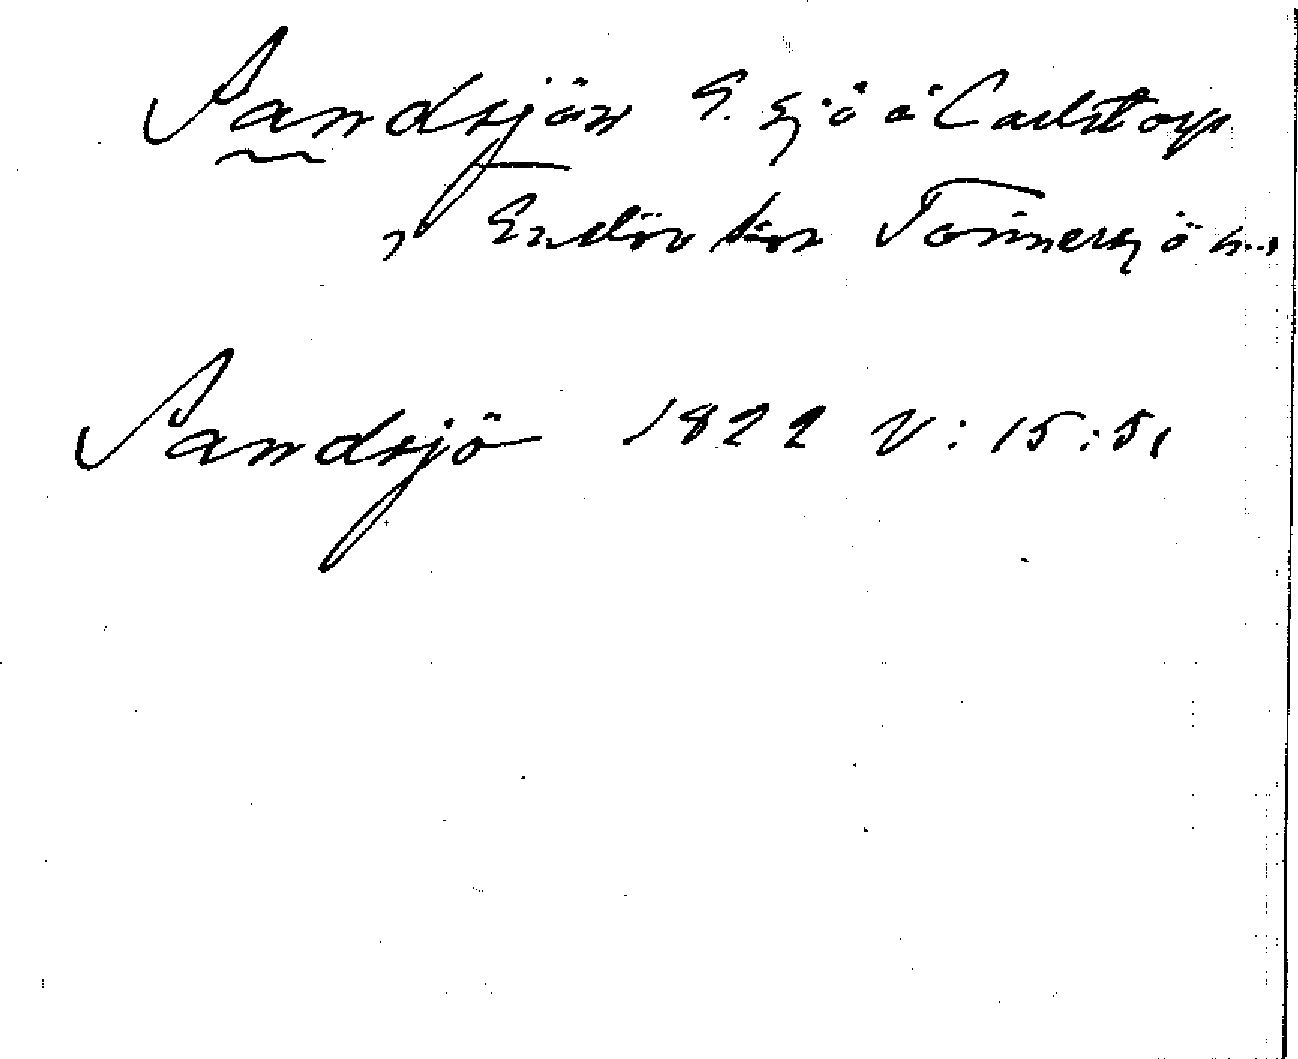 Sandsjön S. sjö å Carlstorp
, Enslöv sn Tönnersjö h.,
Sandsjö 1822 V:15:51